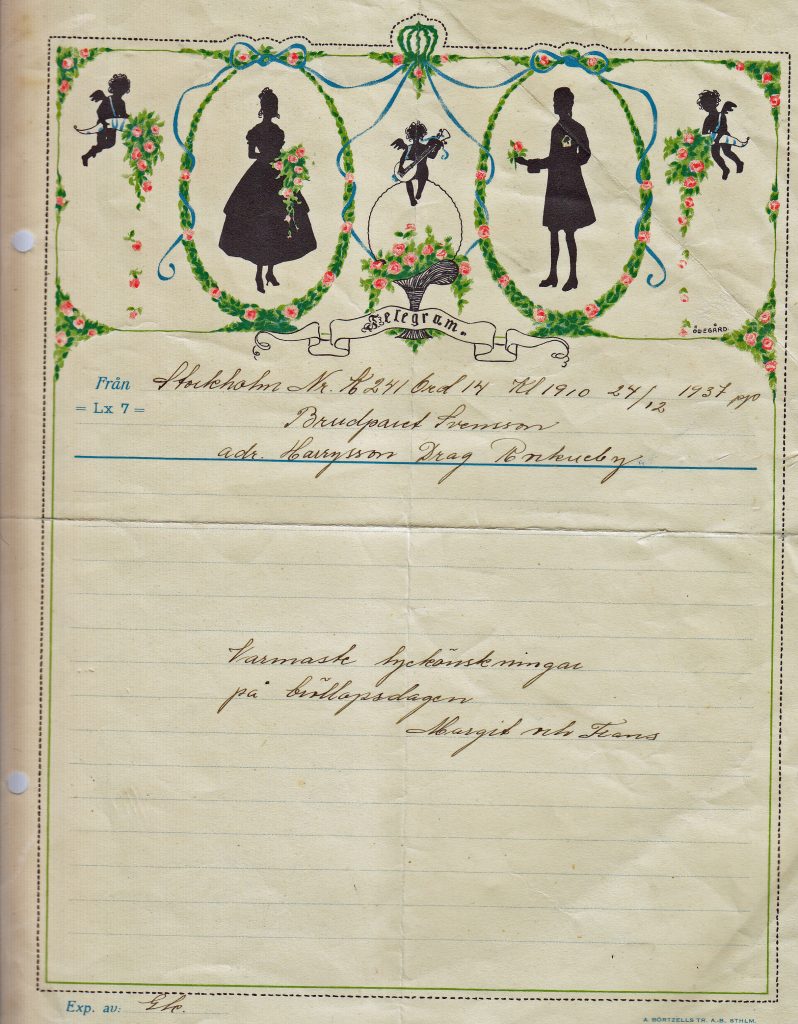 Telegram.
ÖDEGÅRD.
Från Stockholm Nr. A 241 Ord 14 Kl 1910 24/12 1937
= Lx 7 =
Brudparet Svensson
adr. Harrysson Drag Rockneby
Varmaste lyckönskningar
på bröllopsdagen
Margit och Frans
Exp. av:
A. BÖRTZELLS TR. A.-B. STHLM.